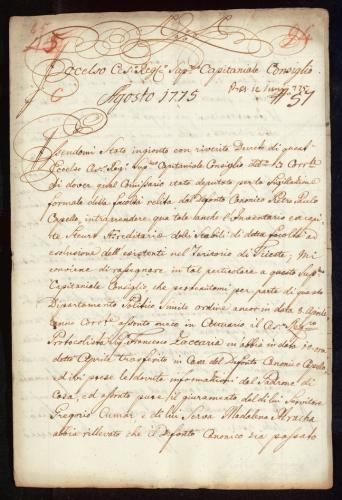 Eccelso Ces: Reg: Sup: Capitaniale Consiglio
Agosto 1775
Essendomi stato ingionto con riverito Decreto di quest'
Eccelso Ces: Reg: Sup: Capitaniale Consiglio 13 Corr:
di dover qual Comissario stato deputato per la Sugillazione
formale della facoltà relita dal Defonto Canonico Pietro Paolo
Capello, intraprendere qua tale anche l'Inventario
Steura Hereditaria delli Stabili di detta facoltà ad
esclusione dell'esistenti nel Teritorio di Trieste; Mi
conviene di rapegnare in tal particolare a questo Sup:
Capitaniale Consiglio, che pervenutomi per parte di questo
Dipartamento Politico simile ordine ancor in data 8 Aprile
anno Corr: assonto meco in Attuario il Ces: Reg:
Protocolista Francesco Zaccaria mi abbia in data
detto Aprile trasferito in Casa del Defonto Canonico Capello,
ed ivi prese le dovute informazioni dal Padrone di
Casa, ed assonto pure il giuramento del di lui Servitore
Gregorio e di lui Serva Madalena
abbia rillevato che il Defonto Canonico sia passato